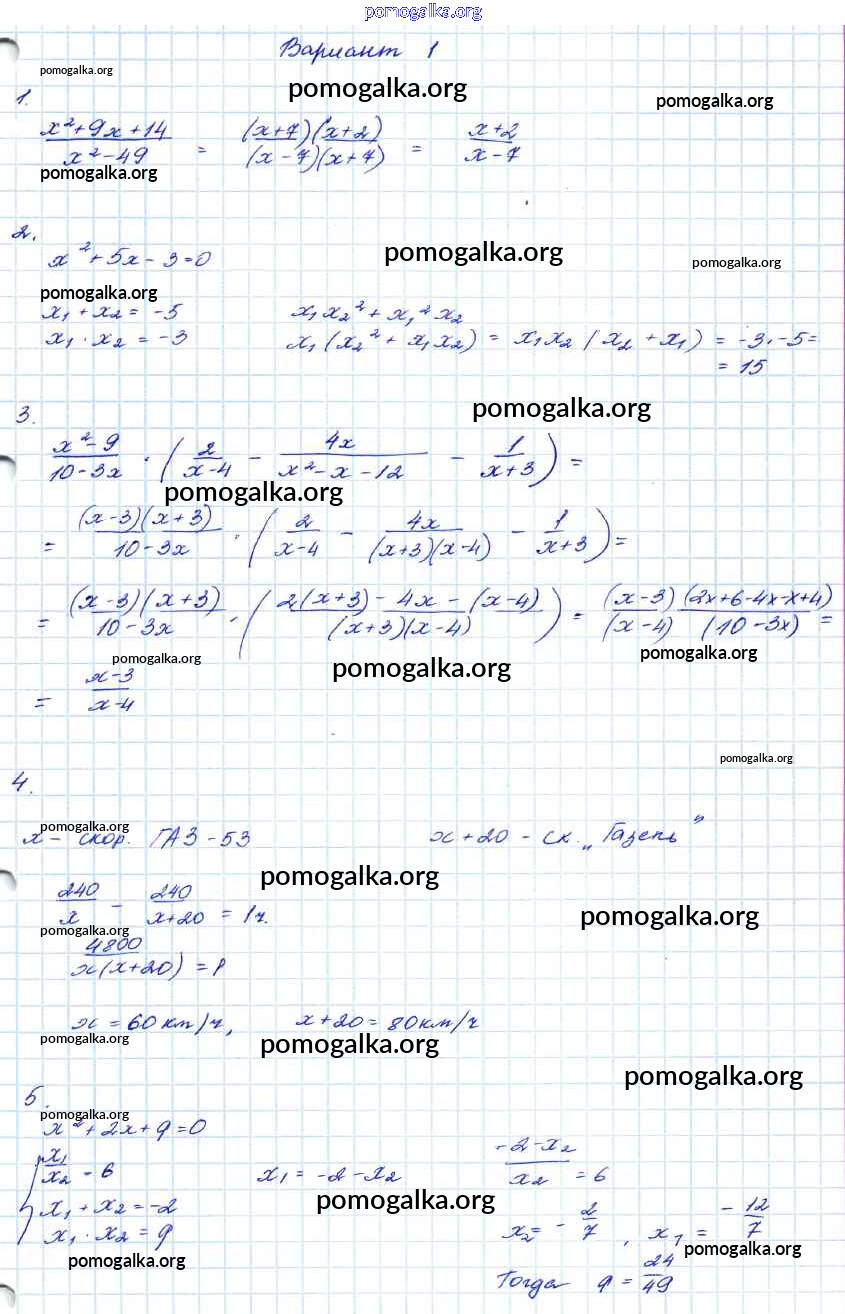 pomogalka.org
Вариант 1
pomogalka.org
pomogalka.org
pomogalka.org
1.
(x²+9x+14)/(x²-49) = ((x+7)(x+2))/((x-7)(x+7)) = (x+2)/(x-7)
pomogalka.org
2.
x²+5x-3=0
pomogalka.org
pomogalka.org
pomogalka.org
x₁+x₂= -5 x₁x₂²+x₁²x₂
x₁·x₂ = -3 x₁(x₂²+x₁x₂) = x₁x₂(x₂+x₁) = -3·-5=
= 15
3.
pomogalka.org
(x²-9)/(10-3x) · (2/(x-4) - 4x/(x²-x-12) - 1/(x+3)) =
pomogalka.org
= ((x-3)(x+3))/(10-3x) · (2/(x-4) - 4x/((x+3)(x-4)) - 1/(x+3)) =
= ((x-3)(x+3))/(10-3x) · ((2(x+3)-4x-(x-4))/((x+3)(x-4))) = ((x-3)(2x+6-4x-x+4))/((x-4)(10-3x)) =
pomogalka.org
pomogalka.org
pomogalka.org
= (x-3)/(x-4)
pomogalka.org
4.
pomogalka.org
x - скор. ГАЗ-53 x+20 - ск. „Газель"
pomogalka.org
240/x - 240/(x+20) = 1ч.
pomogalka.org
pomogalka.org
4800/(x(x+20)) = 1
x = 60 км/ч, x+20 = 80км/ч
pomogalka.org
pomogalka.org
pomogalka.org
5.
pomogalka.org
x²+2x+q=0
x₁/x₂ = 6 x₁ = -2-x₂ (-2-x₂)/x₂ = 6
x₁+x₂=-2
pomogalka.org
x₁·x₂=q x₂= -2/7, x₁ = -12/7
pomogalka.org
pomogalka.org
Тогда q = 24/49